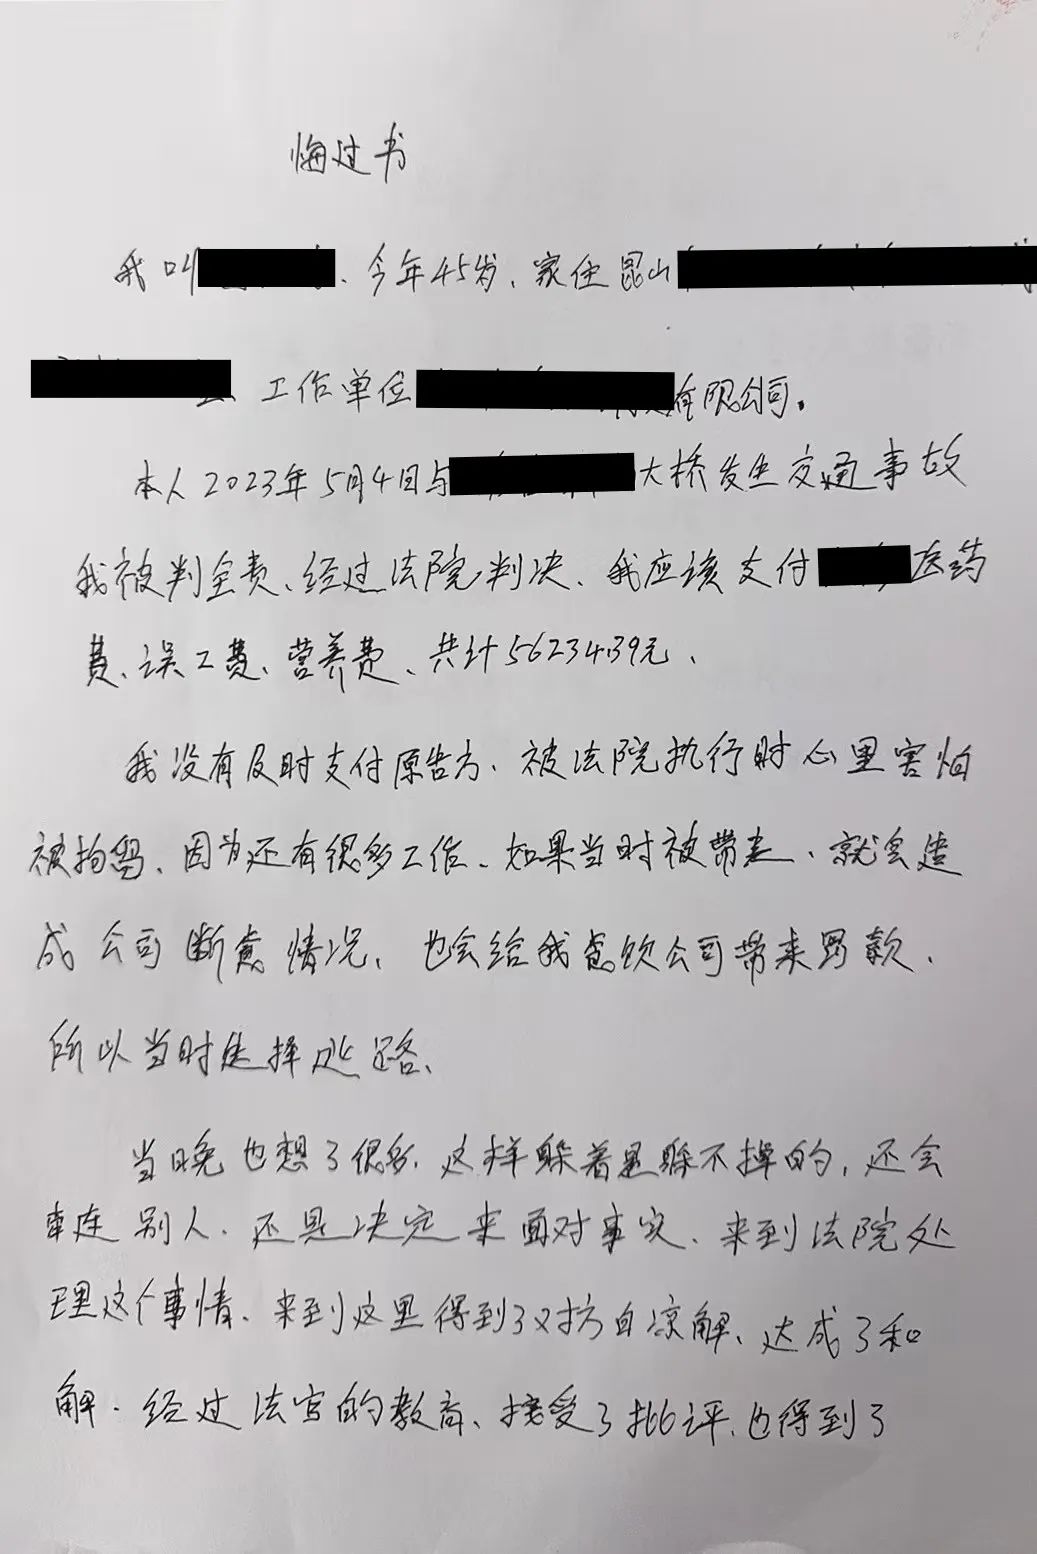 悔过书
我叫、今年45岁、家住昆山
工作单位有限公司。
本人2023年5月4日与大桥发生交通事故
我被判全责、经过法院判决、我应该支付医药
费、误工费、营养费、共计56234.39元、
我没有及时支付原告方、被法院执行时心里害怕
被拘留、因为还有很多工作、如果当时被带走、就会造
成公司断意情况、也会给我意饮公司带来罚款、
所以当时选择逃路、
当晚也想了很多、这样躲着是躲不掉的,还会
牵连别人、还是决定来面对事实、来到法院处
理这个事情、来到这里得到了对方自凉解、达成了和
解、经过法官的教育、接受了批评、也得到了